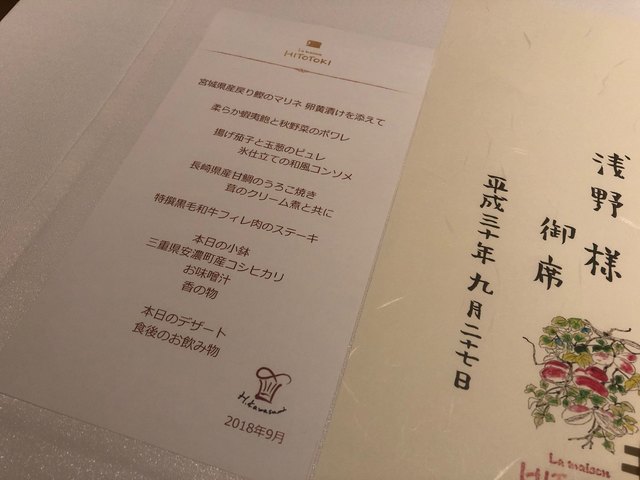 La maison
HITOTOKI
宮城県産戻り鰹のマリネ 卵黄漬けを添えて
柔らか蝦夷鮑と秋野菜のポワレ
揚げ茄子と玉葱のピュレ
氷仕立ての和風コンソメ
長崎県産甘鯛のうろこ焼き
茸のクリーム煮と共に
特撰黒毛和牛フィレ肉のステーキ
本日の小鉢
三重県安濃町産コシヒカリ
お味噌汁
香の物
本日のデザート
食後のお飲み物
2018年9月
浅野様
御席
平成三十年九月二十七日
La maison